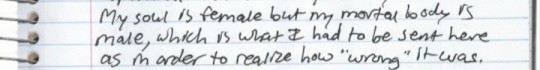 My soul is female but my mortal body is
male, which is what I had to be sent here
as in order to realize how "wrong" it was.